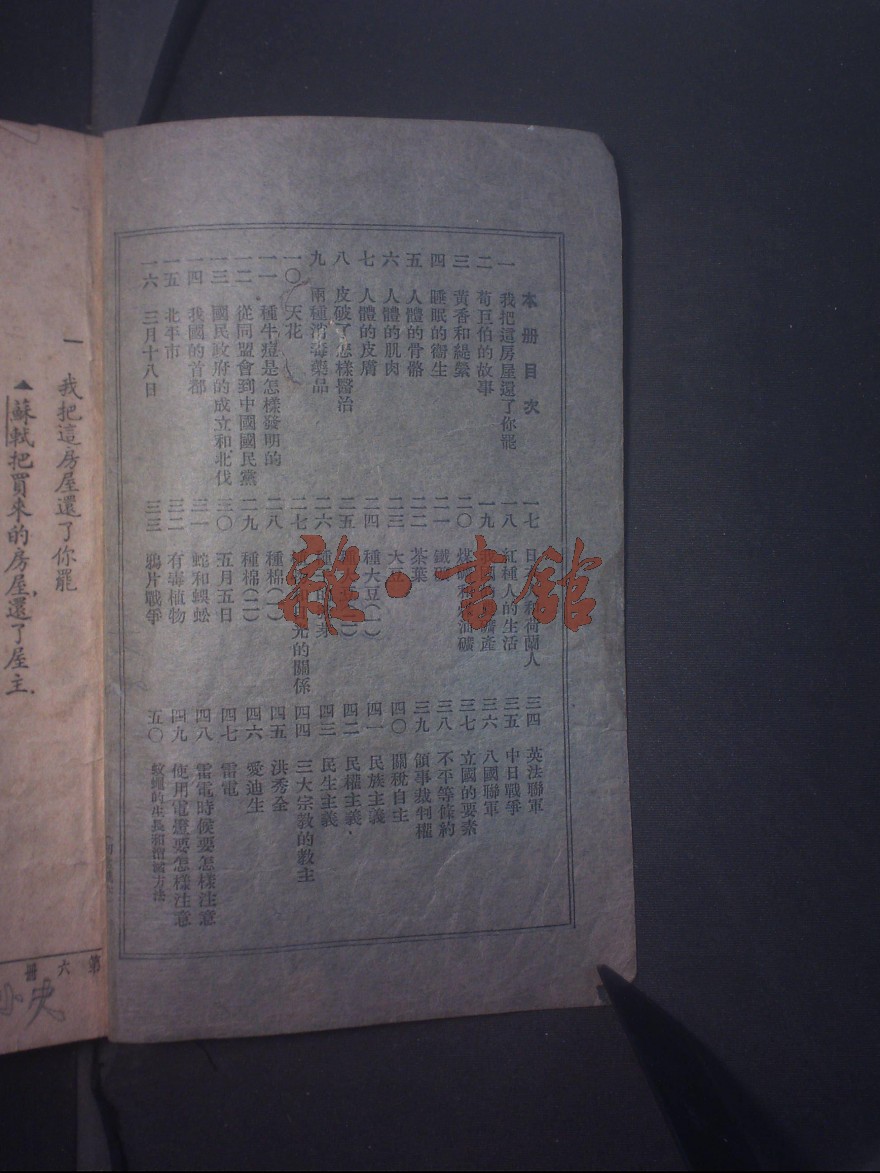 本冊目次
一 我把這房屋還了你罷
二 荀巨伯的故事
三 黃香和緹縈
四 睡眠的衞生
五 人體的骨骼
六 人體的肌肉
七 人體的皮膚
八 皮破了怎樣醫治
九 兩種消毒藥品
一〇 天花
一一 種牛痘是怎樣發明的
一二 從同盟會到中國國民黨
一三 國民政府的成立和北伐
一四 我國的首都
一五 北平市
一六 三月十八日
一七 日 荷蘭人
一八 紅種人的生活
一九 國 礦產
二〇 煤 油礦
二一 鐵
二二 茶葉
二三 大豆
二四 種大豆(一)
二五
二六 種 芽
二七 光的關係
二八 種棉(一)
二九 種棉(二)
三〇 五月五日
三一 蛇和蜈蚣
三二 有毒植物
三三 鴉片戰爭
三四 英法聯軍
三五 中日戰爭
三六 八國聯軍
三七 立國的要素
三八 不平等條約
三九 領事裁判權
四〇 關稅自主
四一 民族主義
四二 民權主義
四三 民生主義
四四 三大宗教的教主
四五 洪秀全
四六 愛迪生
四七 雷電
四八 雷電時候要怎樣注意
四九 使用電燈要怎樣注意
五〇 蚊蠅的生長和 方法
雜·書館
一 我把這房屋還了你罷
▲蘇軾把買來的房屋,還了屋主.
第六冊
小史